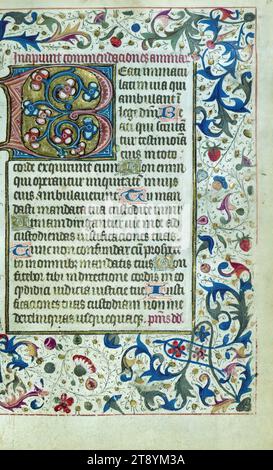 Incipiunt commendaciones animar
Beati inmacu
lati in via qui
ambulant in
lege dni Be
ati qui scruta
tur testimoia
eius in toto
corde exquirunt eum Non enim
qui operantur iniquitate in vijs
eius ambulauerunt Tu man
dasti mandata tua custodiri nimis
Utinam dirigantur vie mee ad
custodiendas iustificaciones tuas
Tunc non confundar cum perspex
ero in omnibus mandatis tuis Con
fitebor tibi in directione cordis in eo
quod didici iudicia iusticie tue Iusti
ficaciones tuas custodiam non me
derelinquas usquequaq
alamy
Image ID: 2A9YM3A
www.alamy.com